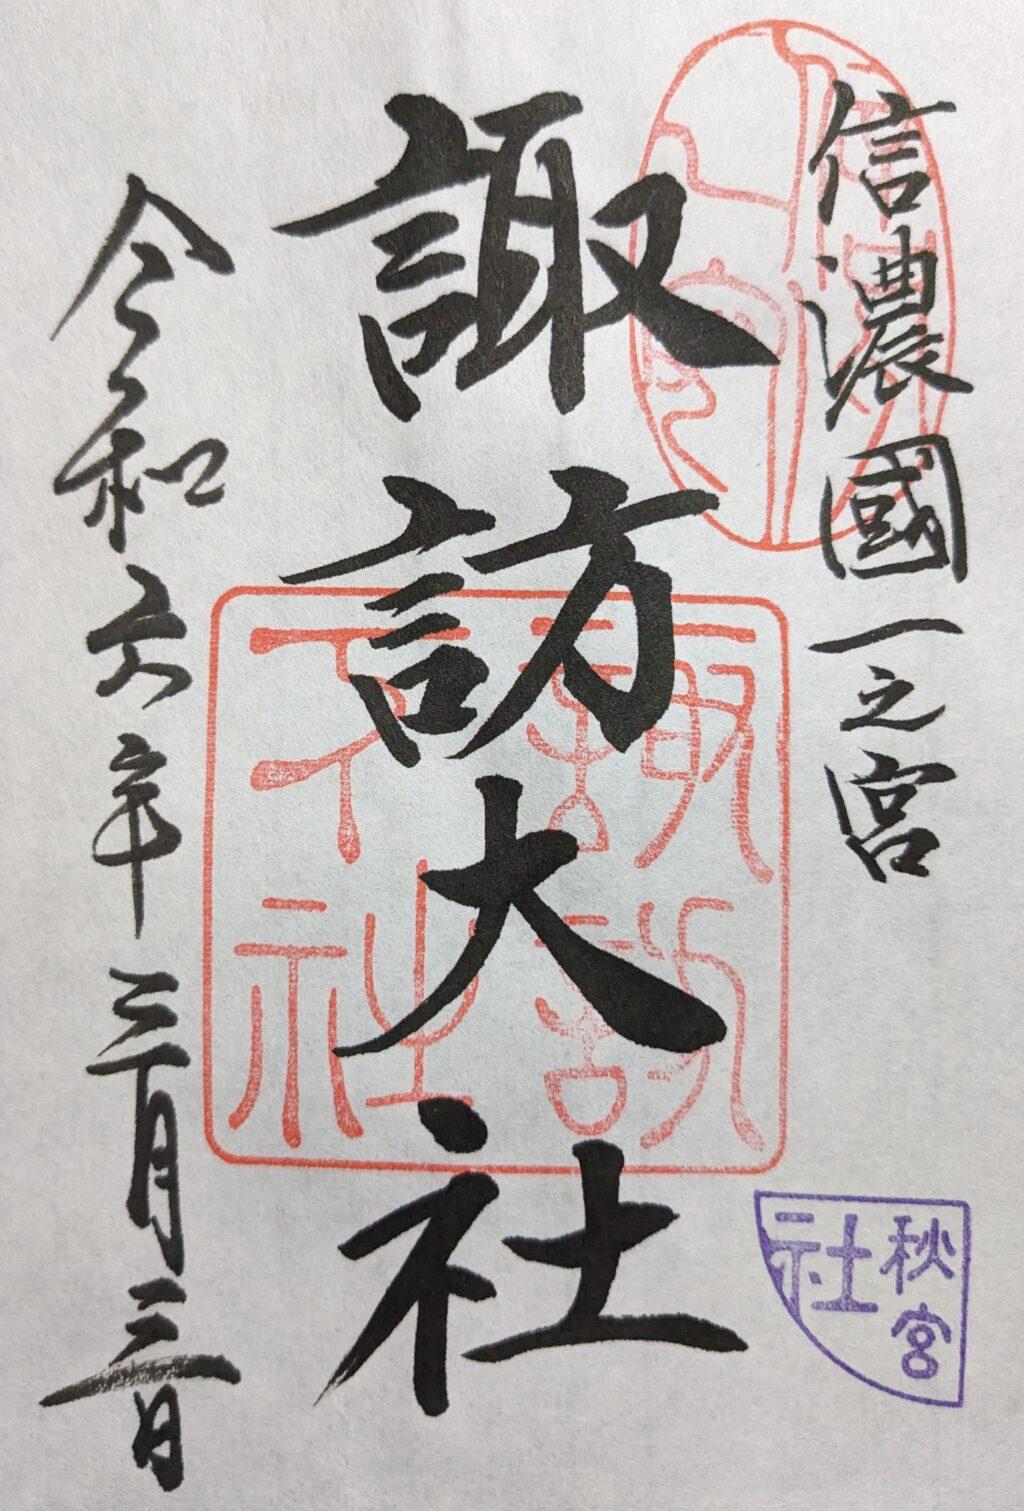 信濃國一之宮
諏訪大社
令和六年三月三日
諏訪
下社
秋宮
社